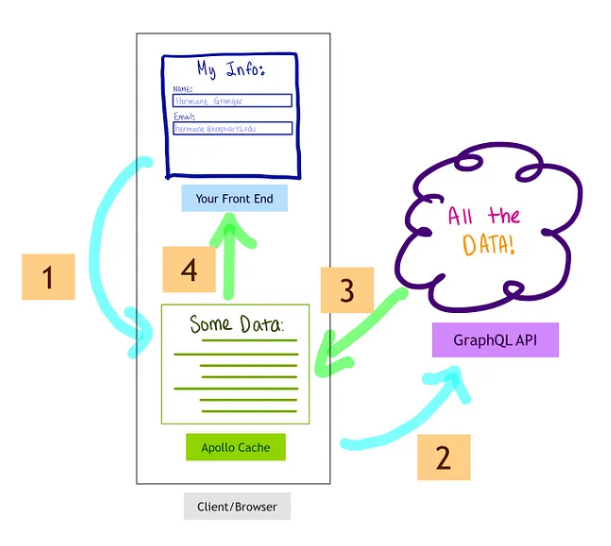 My Info:
NAME:
Hermione Granger
Email:
hermione@hogwarts.edu
Your Front End
1
4
3
2
All the
DATA!
GraphQL API
Some Data:
Apollo Cache
Client/Browser